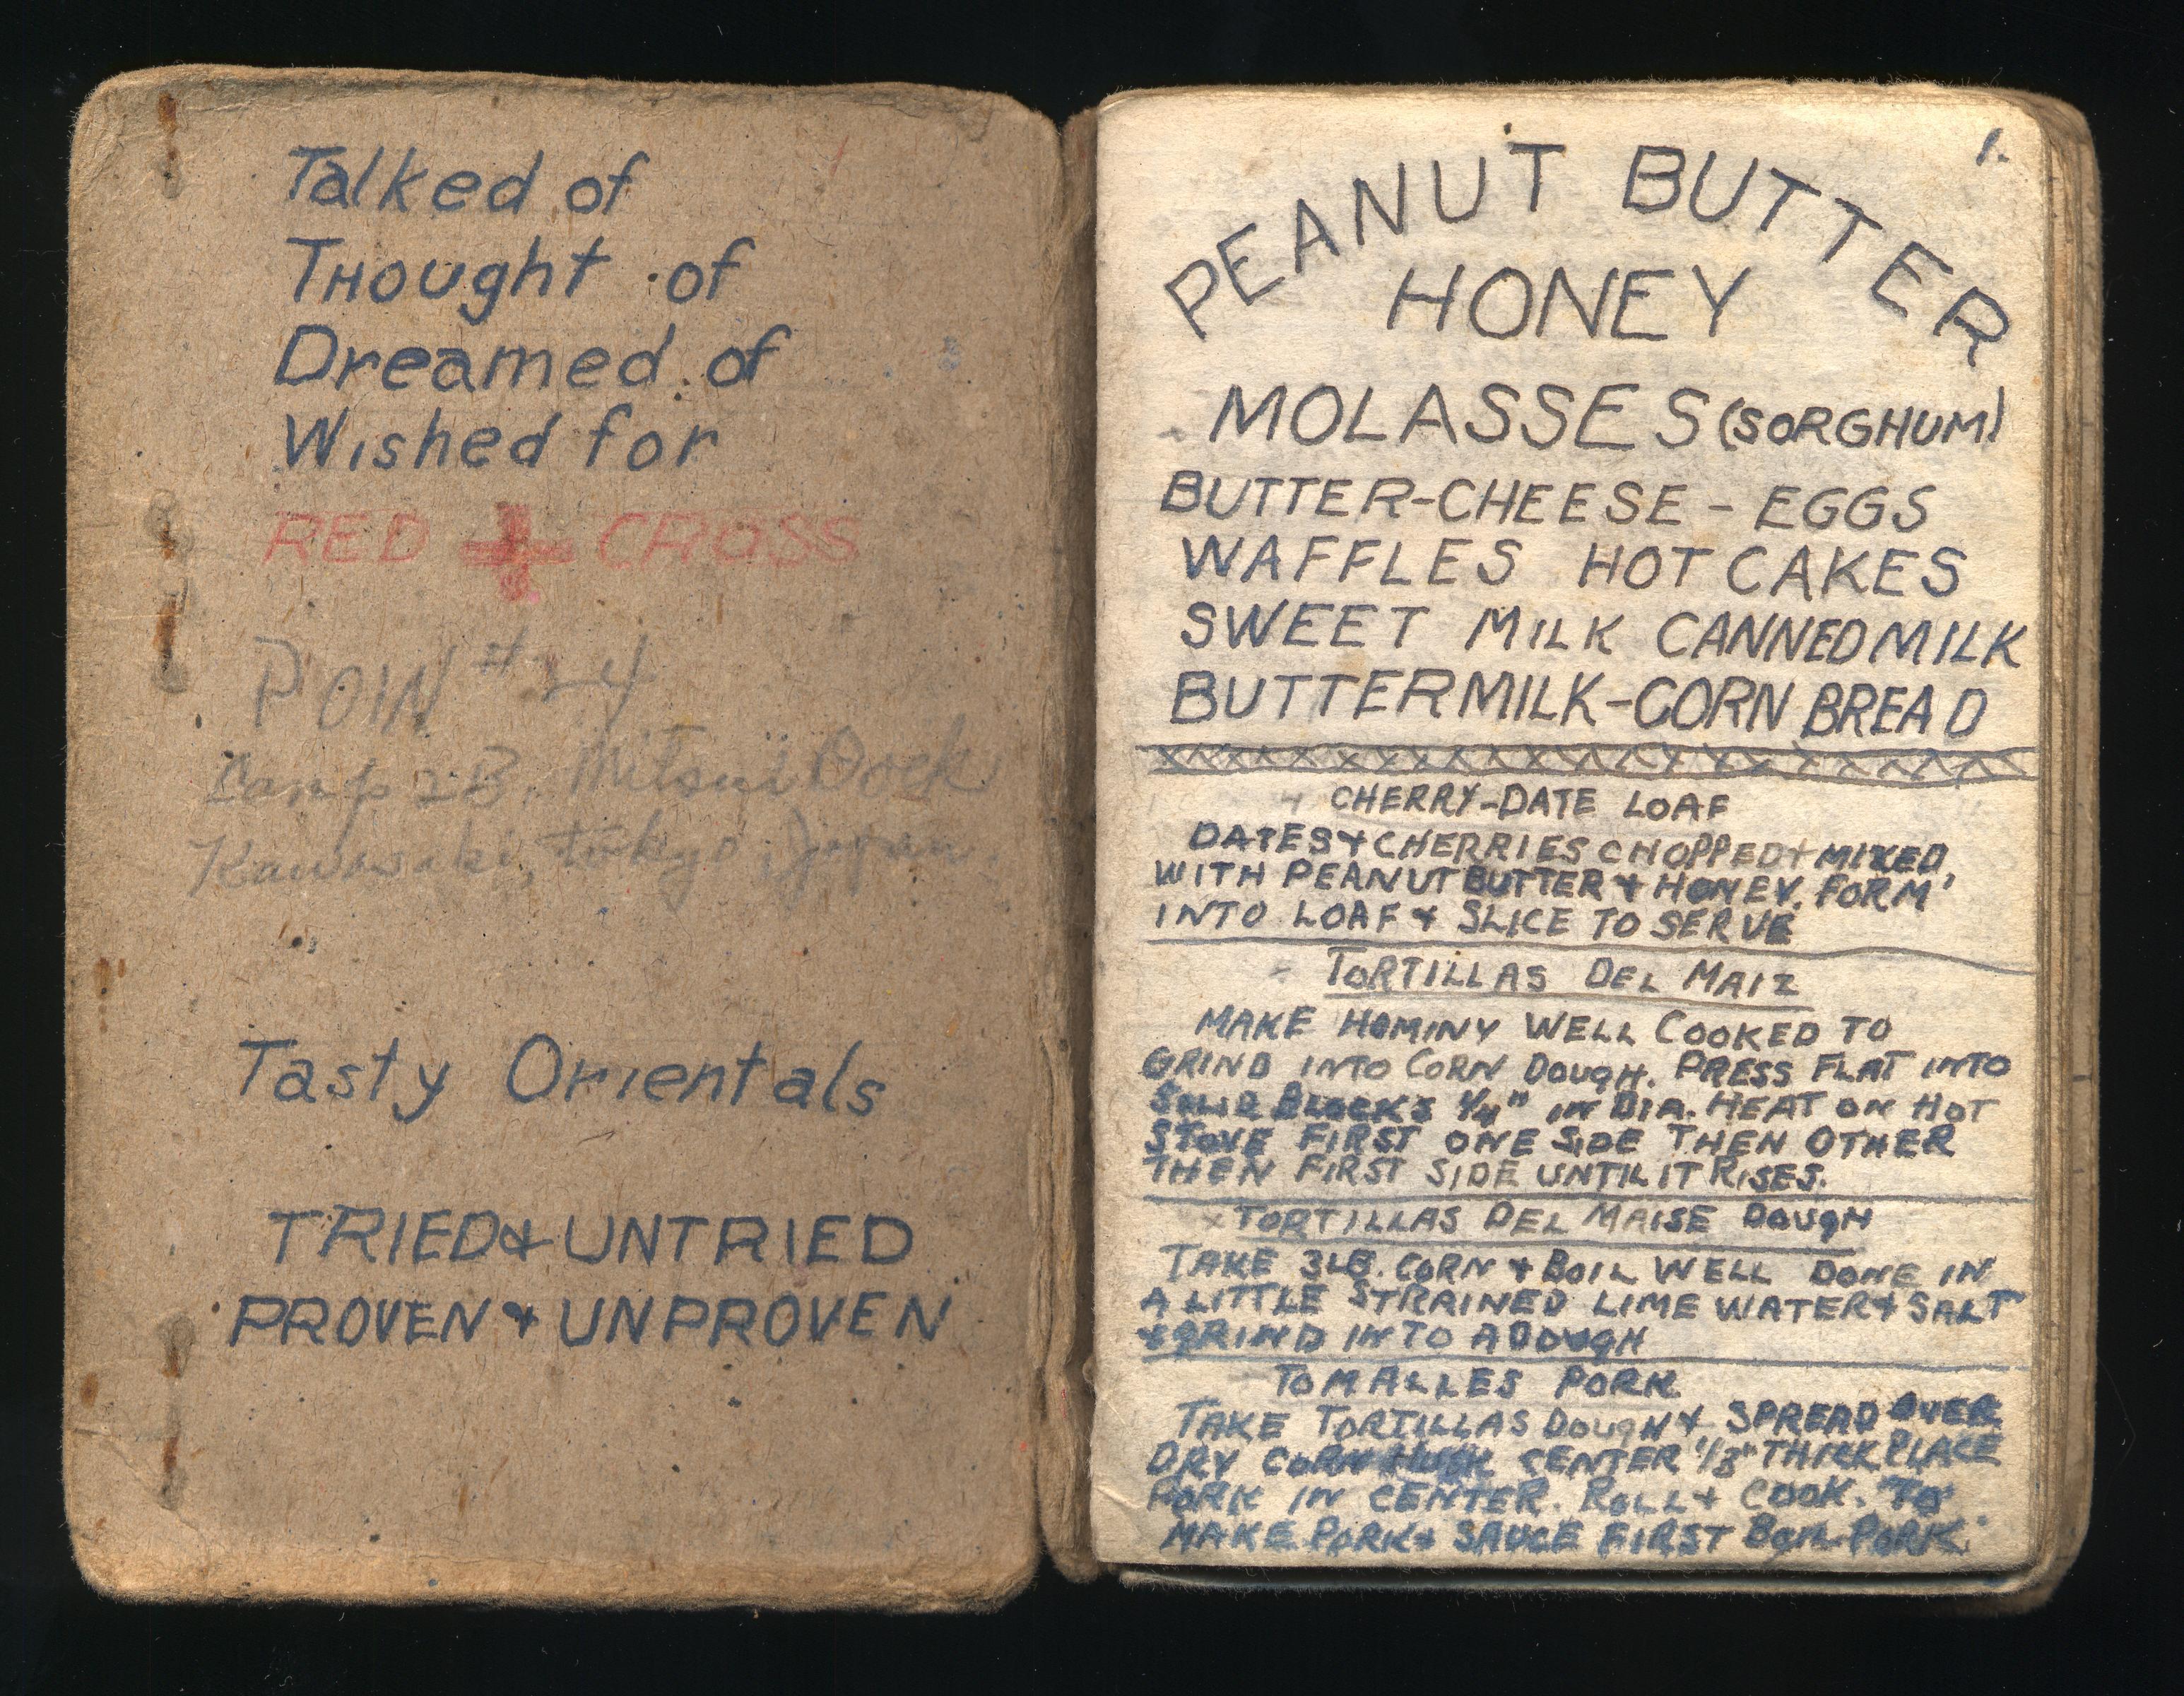 Talked of
Thought of
Dreamed of
Wished for
RED + CROSS
POW #24
Camp 2B, Mitsui Dock
Kawasaki, Tokyo, Japan.
Tasty Orientals
TRIED & UNTRIED
PROVEN & UNPROVEN
1.
PEANUT BUTTER
HONEY
MOLASSES (SORGHUM)
BUTTER-CHEESE - EGGS
WAFFLES HOT CAKES
SWEET MILK CANNED MILK
BUTTERMILK-CORN BREAD
CHERRY-DATE LOAF
DATES & CHERRIES CHOPPED & MIXED,
WITH PEANUT BUTTER & HONEY. FORM
INTO LOAF & SLICE TO SERVE
TORTILLAS DEL MAIZ
MAKE HOMINY WELL COOKED TO
GRIND INTO CORN DOUGH. PRESS FLAT INTO
SOLID BLOCKS 1/4" IN DIA. HEAT ON HOT
STOVE FIRST ONE SIDE THEN OTHER
THEN FIRST SIDE UNTIL IT RISES.
TORTILLAS DEL MAISE DOUGH
TAKE 3 LB. CORN & BOIL WELL DONE IN
A LITTLE STRAINED LIME WATER & SALT
& GRIND INTO A DOUGH
TOMALLES PORK
TAKE TORTILLAS DOUGH & SPREAD OVER
DRY CORN HUSK CENTER 1/8" THICK PLACE
PORK IN CENTER. ROLL & COOK. TO
MAKE PORK & SAUCE FIRST BOIL PORK